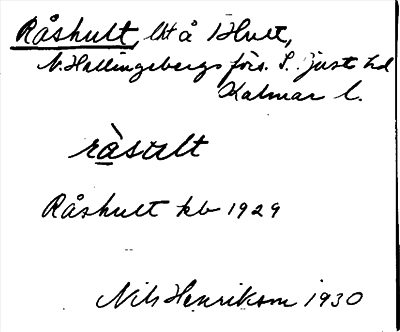 Råshult, Ut å Hult,
N. Hallingebergs förs. S. Tjust hd
Kalmar l.
ràsult
Råshult kb 1929
Nils Henrikson 1930